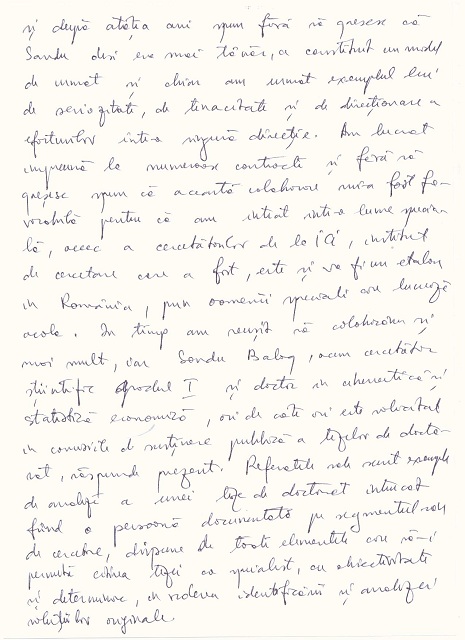 și după atâția ani spun fără să greșesc că
Sandu deși era mai tânăr, a constituit un model
de urmat și chiar am urmat exemplul lui
de seriozitate, de tenacitate și de direcționare a
eforturilor într-o singură direcție. Am lucrat
împreună la numeroase contracte și fără să
greșesc spun că această colaborare mi-a fost fa-
vorabilă pentru că am intrat într-o lume specia-
lă, aceea a cercetătorilor de la ICI, institut
de cercetare care a fost, este și va fi un etalon
în România, prin oamenii speciali care lucrează
acolo. În timp am reușit să colaborăm și
mai mult, iar Sandu Balog, acum cercetător
științific gradul I și doctor în cibernetică și
statistică economică, ori de câte ori este solicitat
în comisiile de susținere publică a tezelor de docto-
rat, răspunde prezent. Referatele sale sunt exemple
de analiză a unei teze de doctorat întrucât
fiind o persoană documentată pe segmentul său
de cercetare, dispune de toate elementele care să-i
permită citirea tezei ca specialist, cu obiectivitate
și determinare, în vederea identificării și analizei
soluțiilor originale.